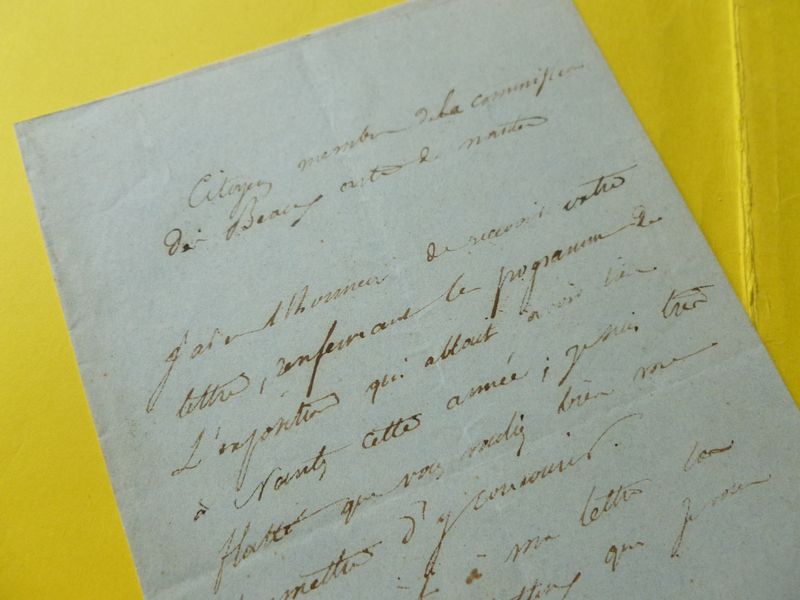 Citoyen membre de la commission
des Beaux arts de nantes
J'ai eu l'honneur de recevoir votre
lettre, renfermant le programme de
L'exposition qui allait avoir lieu
à Nantes cette année; je suis très
flatté que vous vouliez bien me
mettre d'y concourir.
à ma lettre la
que je